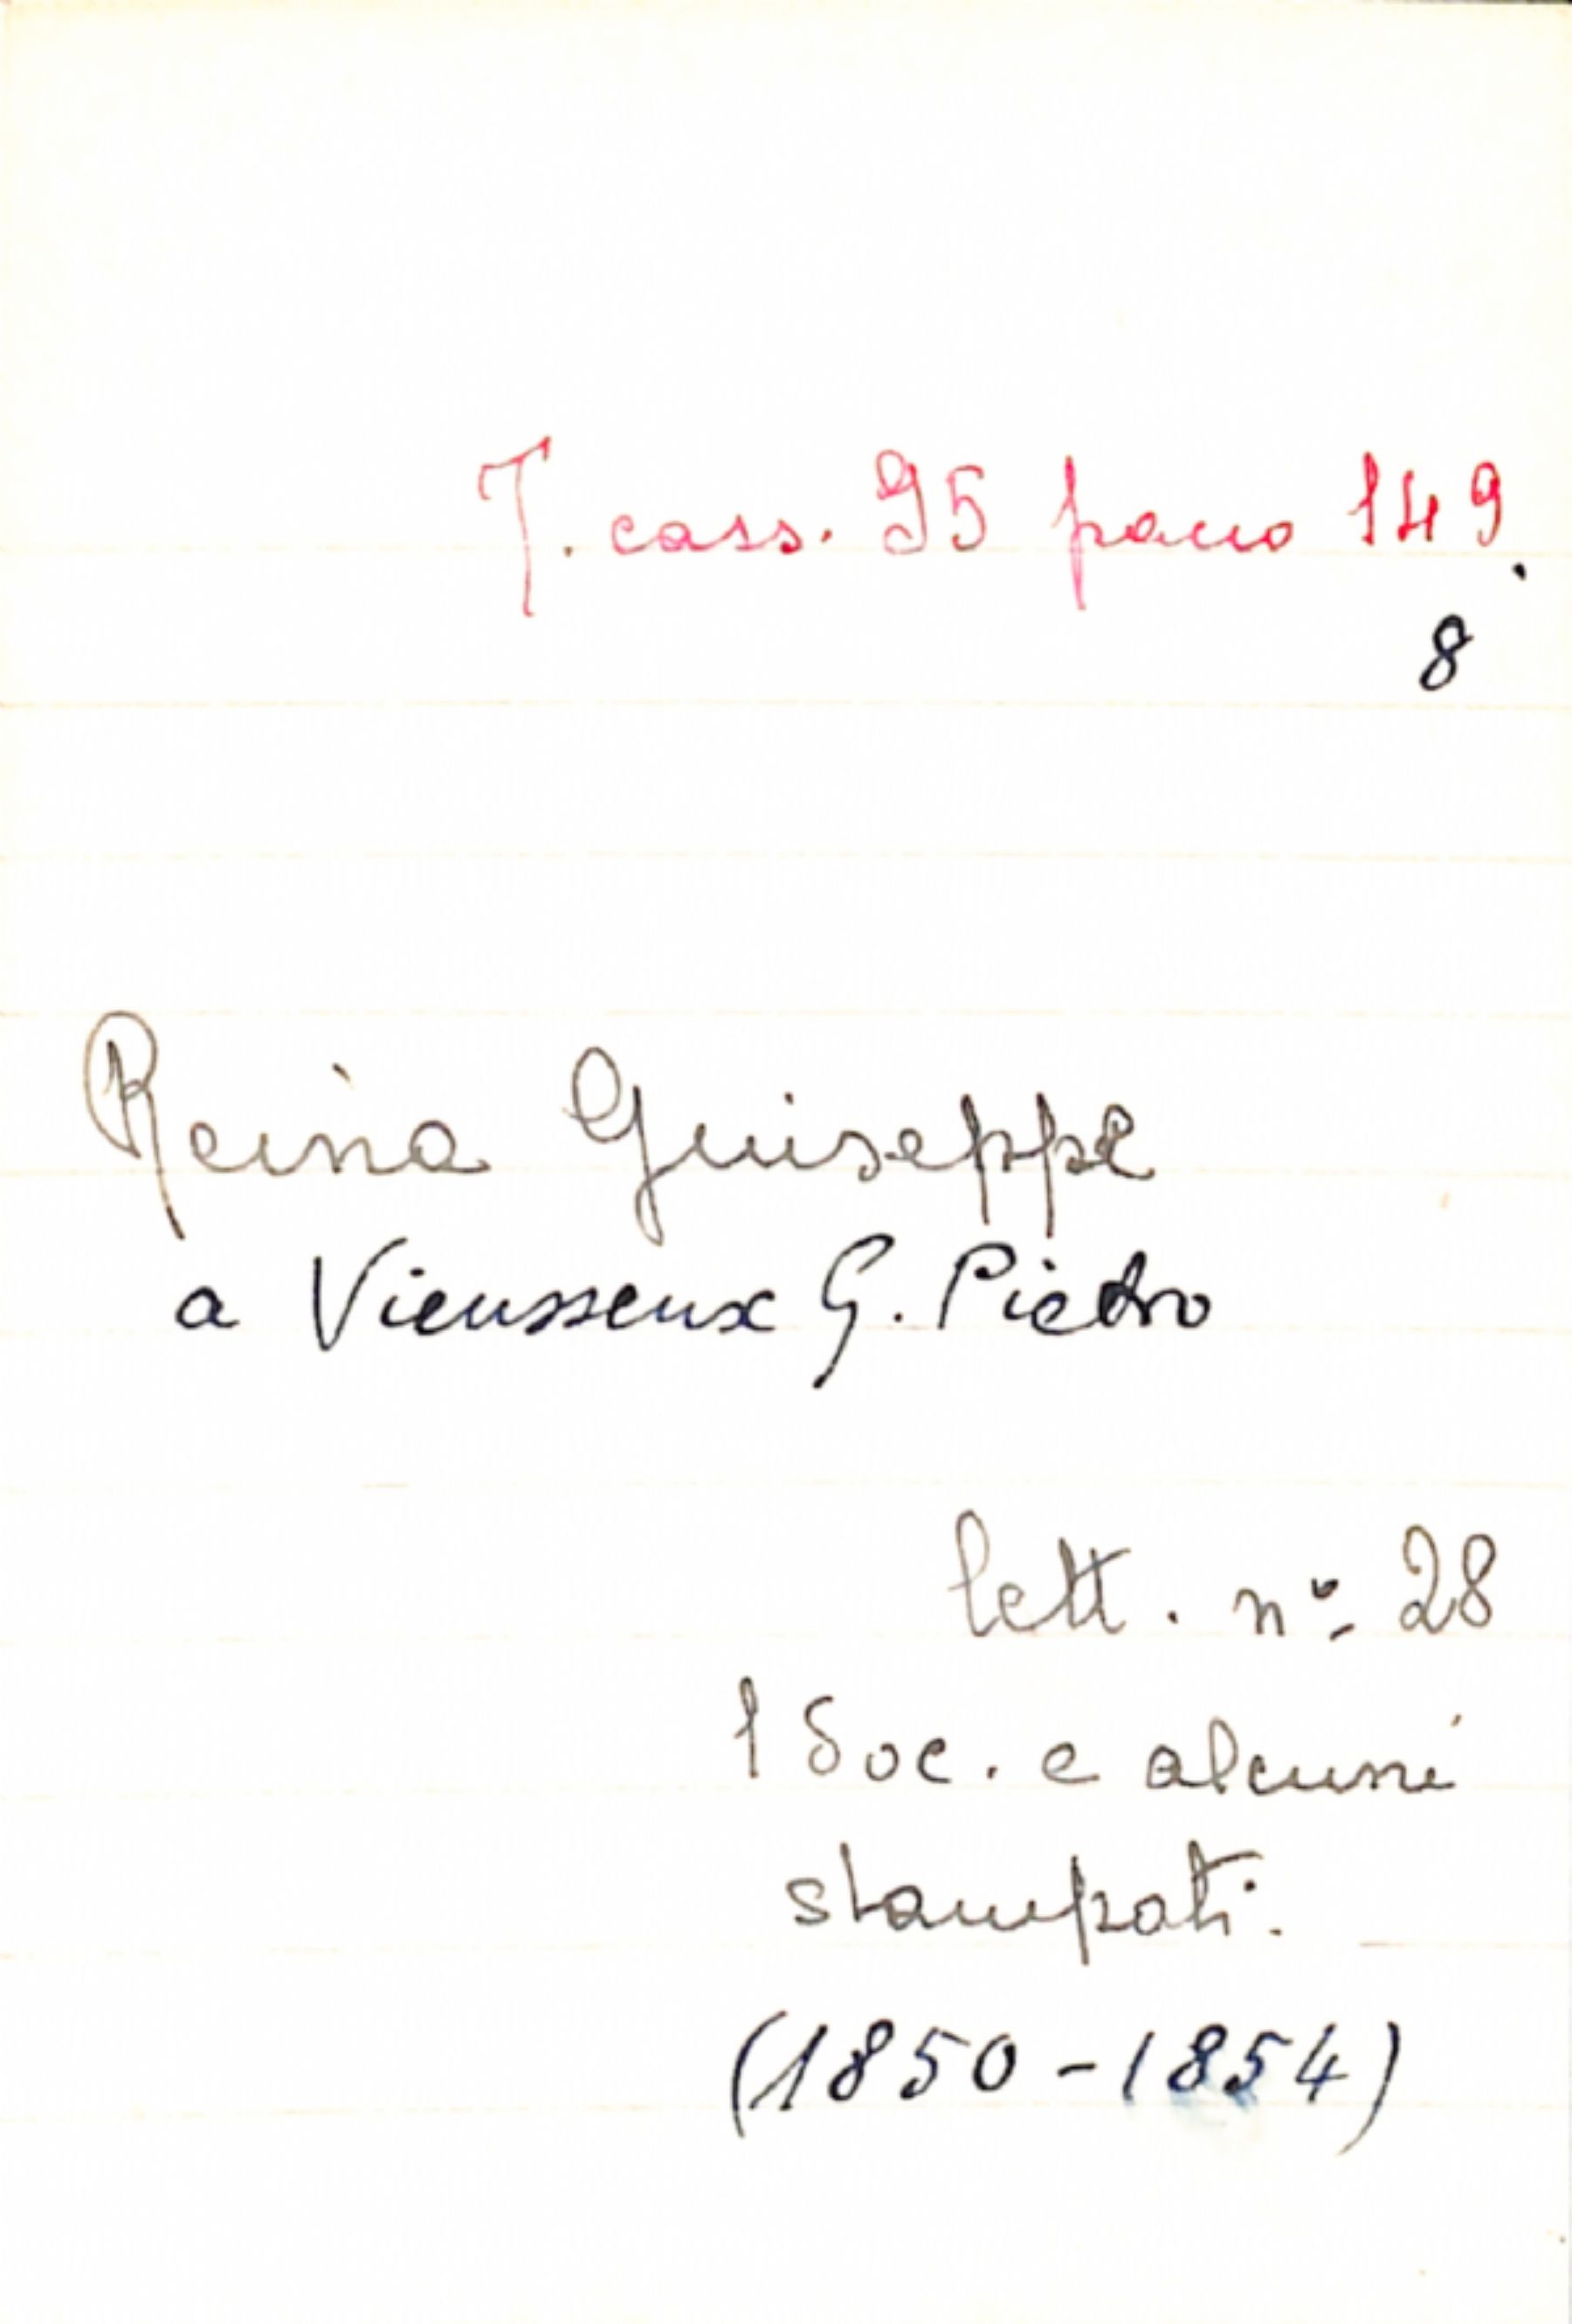 T. cass. 95 pacco 149.
8
Reina Giuseppe
a Vieusseux G. Pietro
lett. nº 28
1 doc. e alcuni
stampati.
(1850-1854)